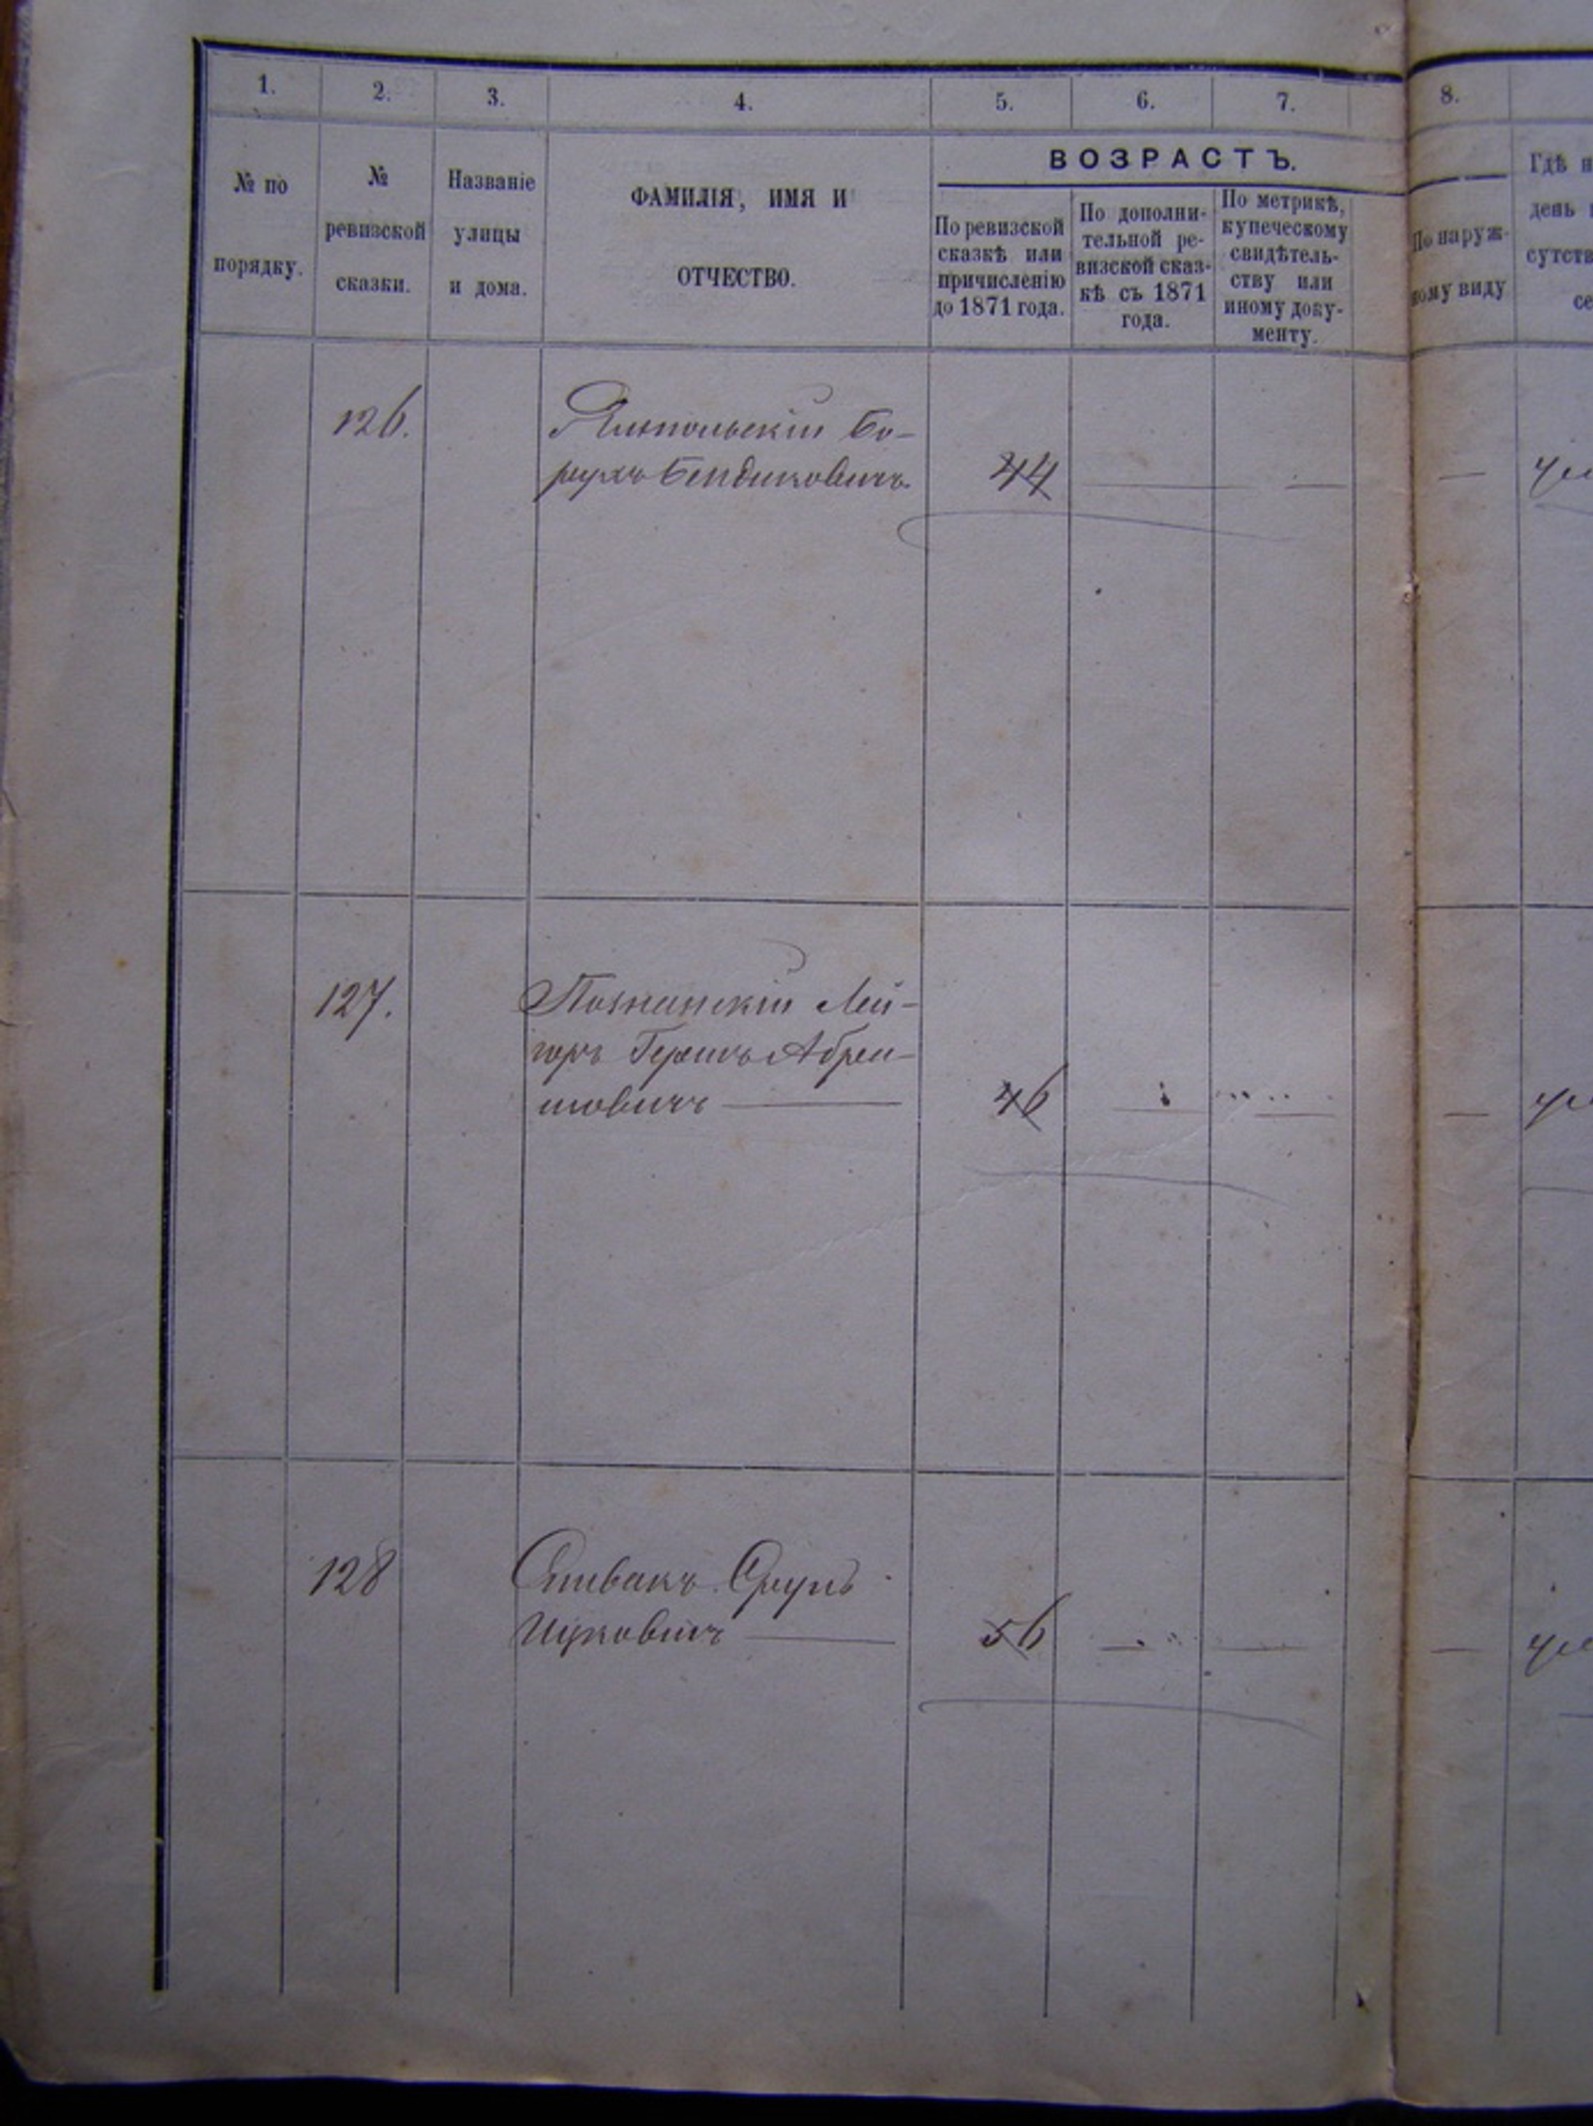 1. 2. 3. 4. 5. 6. 7. 8.
№ по
порядку.
№
ревизской
сказки.
Названіе
улицы
и дома.
ФАМИЛІЯ, ИМЯ И
ОТЧЕСТВО.
ВОЗРАСТЪ.
По ревизской
сказкѣ или
причисленію
до 1871 года.
По дополни-
тельной ре-
визской сказ-
кѣ съ 1871
года.
По метрикѣ,
купеческому
свидѣтель-
ству или
иному доку-
менту.
По наруж-
ному виду
Гдѣ н
день
сутств
се
126. Ямпольскій Бо-
рухъ Бендиковичъ. 44
127. Познанскій Лей-
Гершъ Абра-
мовичъ 46
128 Спивакъ Сруль
Ицковичъ 56